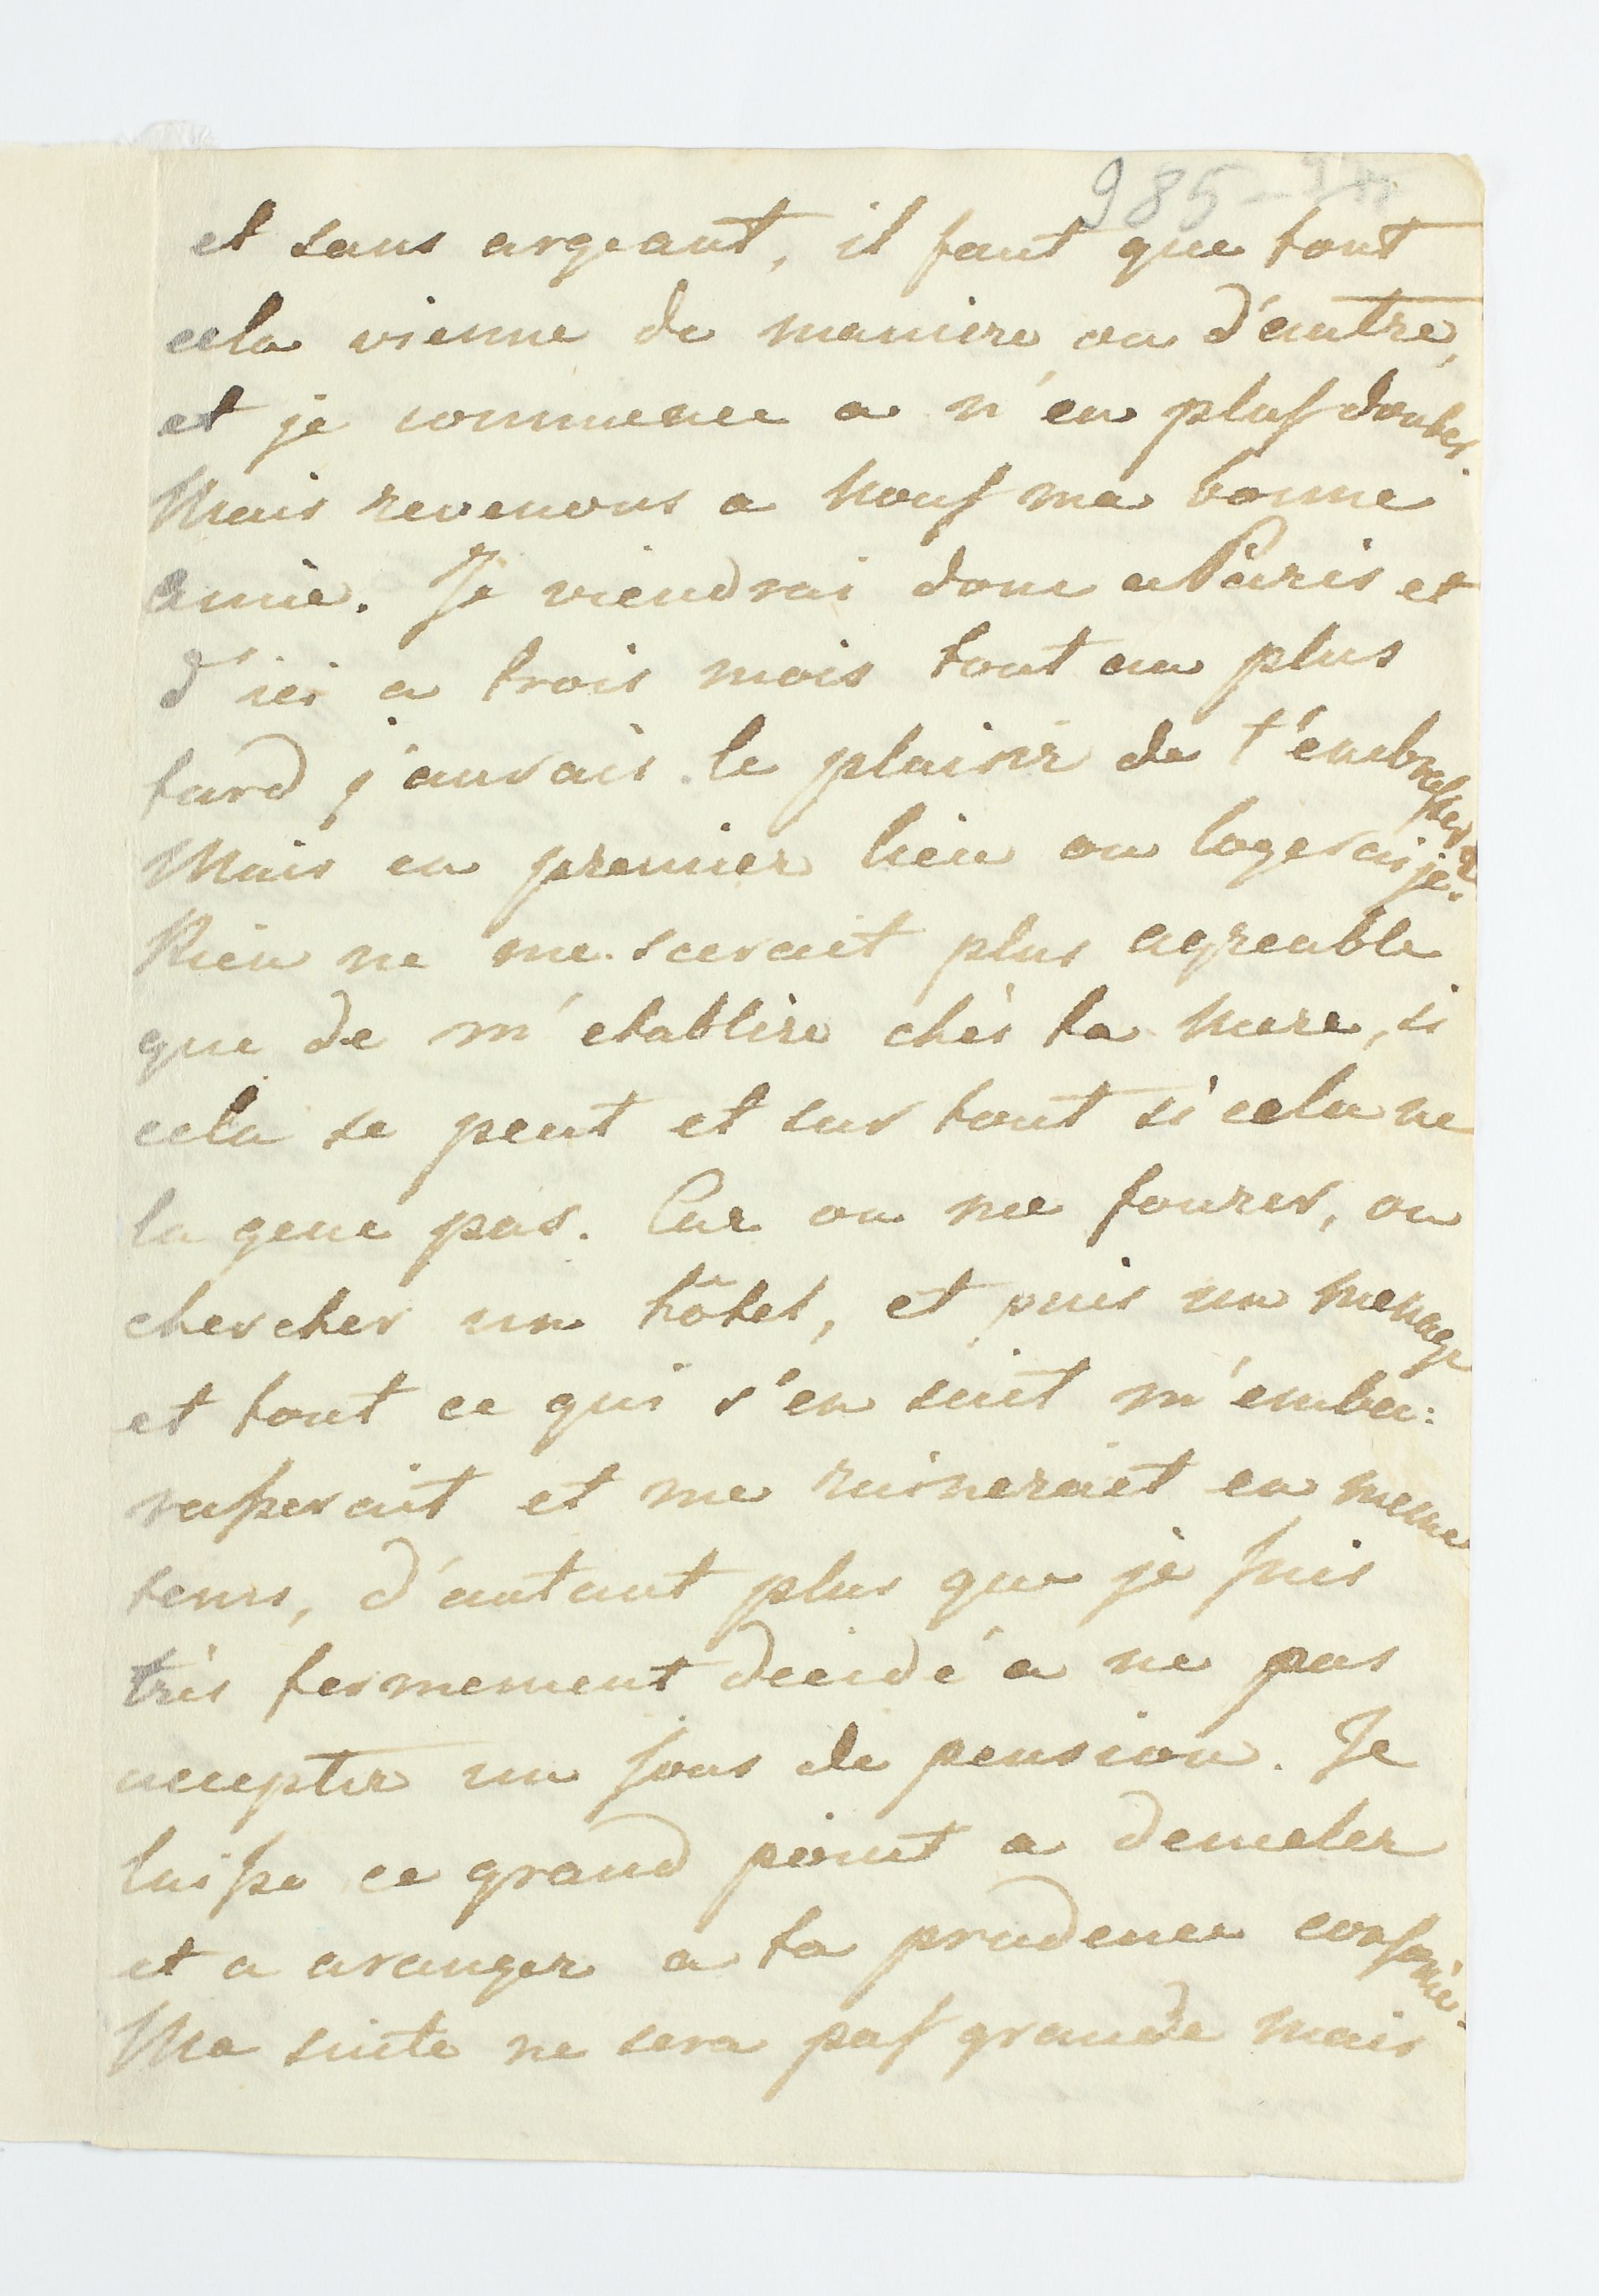 985-
et sans argeant, il faut que tout
cela vienne de maniere ou d'autre,
et je commence a n'en plus douter.
Mais revenons a nous ma bonne
amie. Je viendrai donc a Paris et
d'ici a trois mois tout au plus
tard j'aurais le plaisir de t'embrasser
Mais en premier lieu ou logerais je?
Rien ne me scerait plus agreable
que de m'etablire chès ta mere, si
cela se peut et sur tout si cela ne
la gene pas. Car ou me fourer, ou
chercher un hôtel, et puis un menage
et tout ce qui s'en suit m'emba:
rasserait et me ruinerait en meme
tems, d'autant plus que je suis
très fermement decidé a ne pas
accepter un sous de pension. Je
laisse ce grand point a demeler
et a aranger a ta prudence consomée.
Ma suite ne sera pas grande mais